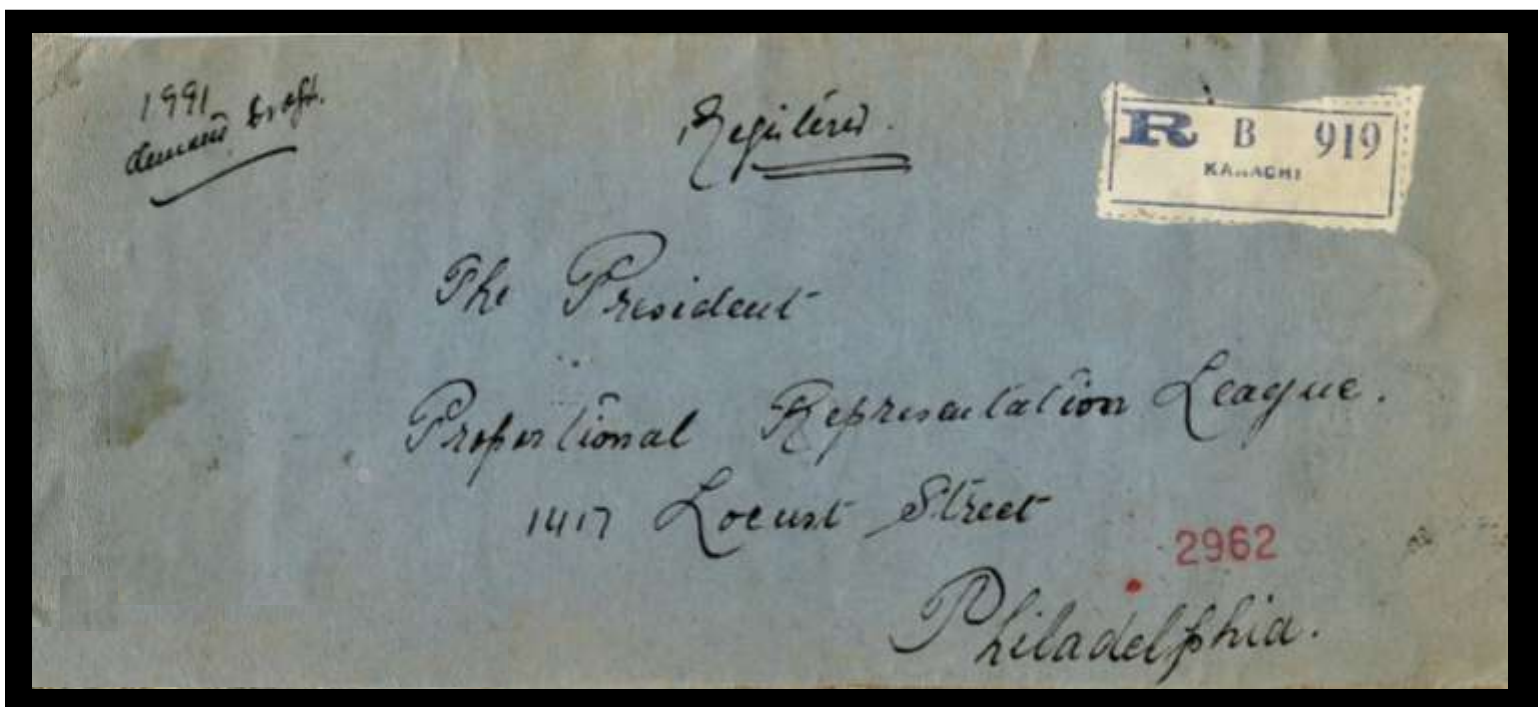 1991
demand Draft.
Registered.
R B 919
KARACHI
The President
Proportional Representation League.
1417 Locust Street
2962
Philadelphia.